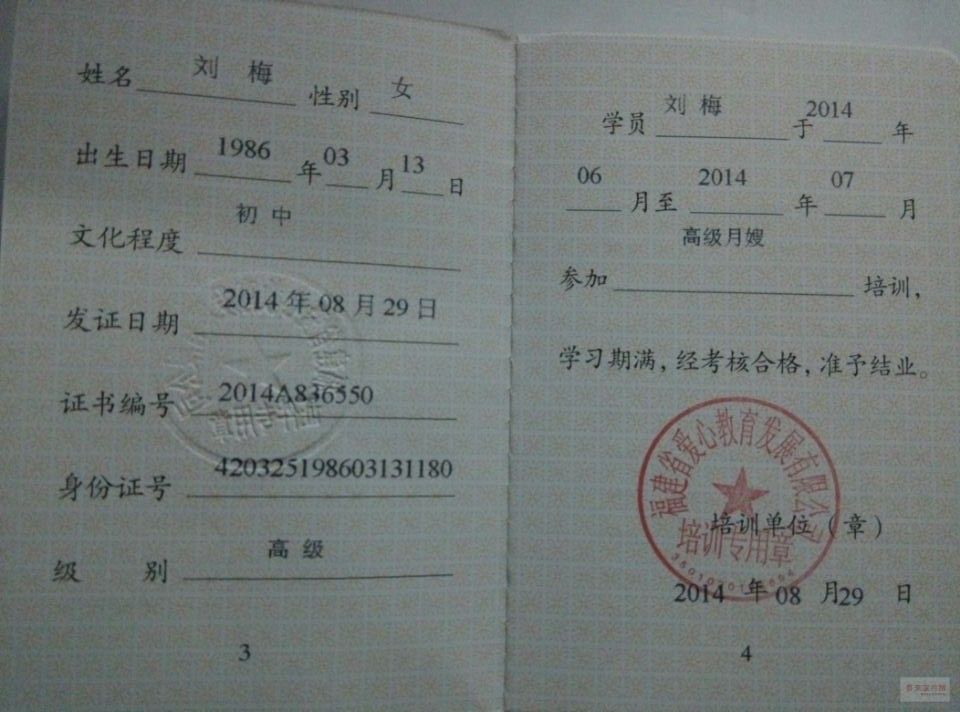 姓名 刘 梅 性别 女
出生日期 1986 年 03 月 13 日
文化程度 初 中
发证日期 2014 年 08 月 29 日
证书编号 2014A836550
身份证号 420325198603131180
级 别 高 级
3
学员 刘 梅 于 2014 年
06 月至 2014 年 07 月
参加 高级月嫂 培训，
学习期满，经考核合格，准予结业。
福建省爱心教育发展有限公司
培训专用章
培训单位（章）
2014 年 08 月 29 日
4